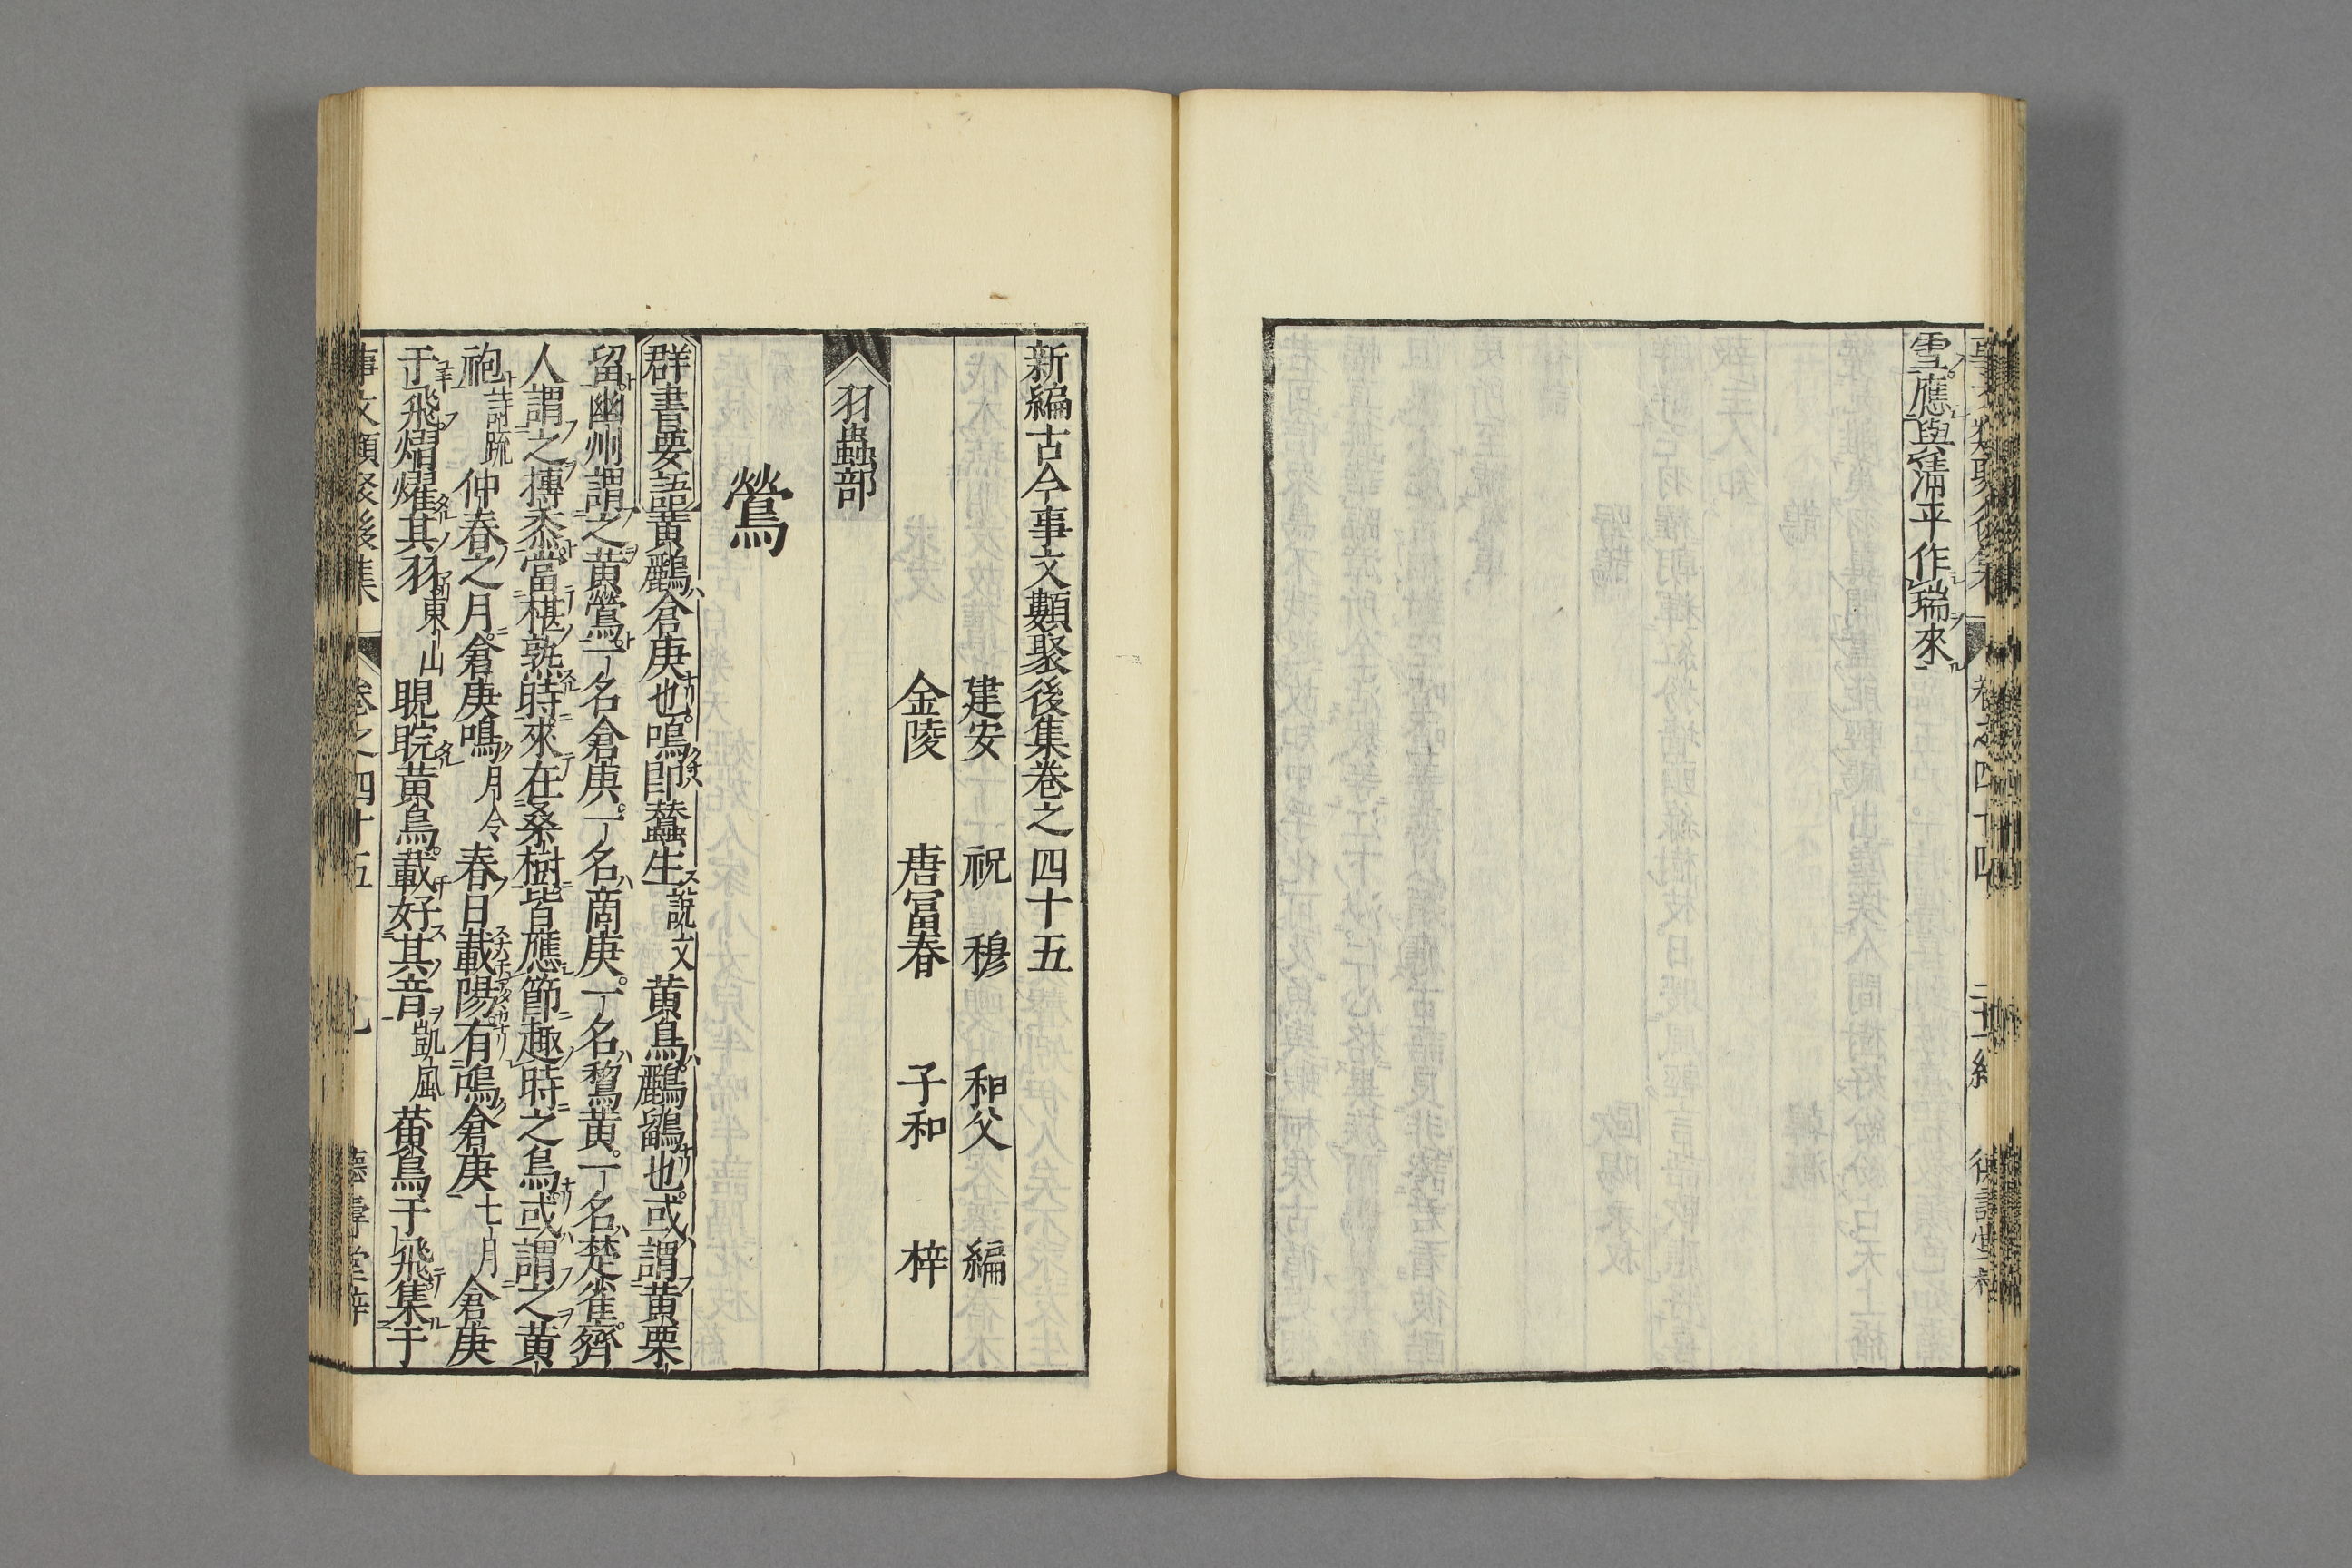 雪應與清平作瑞來
新編古今事文類聚後集卷之四十五
建安 祝 穆 和父 編
金陵 唐富春 子和 梓
羽蟲部
鶯
群書要語黄鸝倉庚也鳴卽蠶生說文黄鳥鸝鶹也或謂黄栗
留幽州謂之黄鶯一名倉庚一名商庚一名鵹黄一名楚雀齊
人謂之摶黍當椹熟時來在桑樹皆應節趣時之鳥或謂之黄
袍詩疏仲春之月倉庚鳴月令春日載陽有鳴倉庚七月倉庚
于飛熠燿其羽東山睍睆黄鳥載好其音凱風黄鳥于飛集于
事文類聚後集 卷之四十五